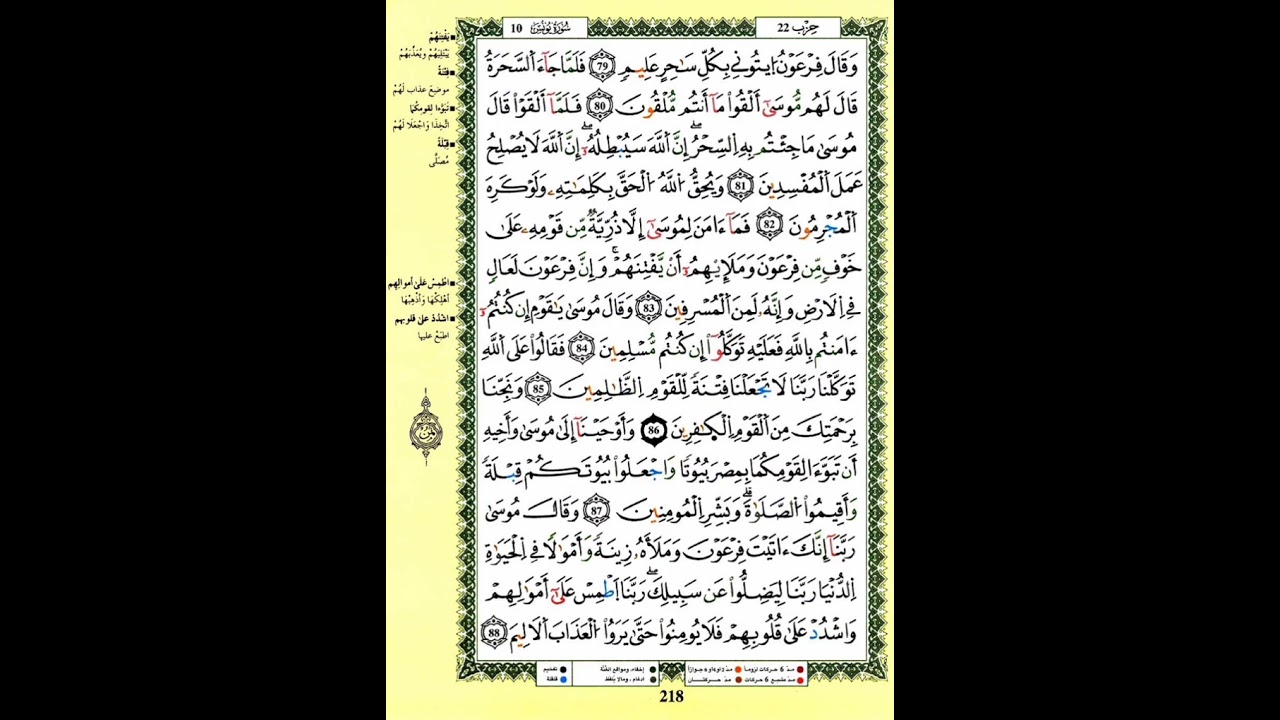 حِزْب 22
سُورَةُ يُونُسَ 10
وَقَالَ فِرْعَوْنُ اُ۪يتُونِے بِكُلِّ سَٰحِرٍ عَلِيمٖ 79 فَلَمَّا جَآءَ اَ۬لسَّحَرَةُ
قَالَ لَهُم مُّوسَيٰٓ أَلْقُواْ مَآ أَنتُم مُّلْقُونَ 80 فَلَمَّآ أَلْقَوْاْ قَالَ
مُوسَيٰ مَا جِئْتُم بِهِ اِ۬لسِّحْرُ إِنَّ اَ۬للَّهَ سَيُبْطِلُهُۥٓ إِنَّ اَ۬للَّهَ لَا يُصْلِحُ
عَمَلَ اَ۬لْمُفْسِدِينَ 81 وَيُحِقُّ اُ۬للَّهُ اُ۬لْحَقَّ بِكَلِمَٰتِهِۦ وَلَوْ كَرِهَ
اَ۬لْمُجْرِمُونَ 82 فَمَآ ءَامَنَ لِمُوسَيٰٓ إِلَّا ذُرِّيَّةٞ مِّن قَوْمِهِۦ عَلَيٰ
خَوْفٖ مِّن فِرْعَوْنَ وَمَلَإِيْهِمُۥٓ أَنْ يَّفْتِنَهُمْ وَإِنَّ فِرْعَوْنَ لَعَالٖ
فِے اِ۬لَارْضِ وَإِنَّهُۥ لَمِنَ اَ۬لْمُسْرِفِينَ 83 وَقَالَ مُوسَيٰ يَٰقَوْمِ إِن كُنتُمُۥٓ
ءَامَنتُم بِاللَّهِ فَعَلَيْهِ تَوَكَّلُوٓاْ إِن كُنتُم مُّسْلِمِينَ 84 فَقَالُواْ عَلَي اَ۬للَّهِ
تَوَكَّلْنَا رَبَّنَا لَا تَجْعَلْنَا فِتْنَةٗ لِّلْقَوْمِ اِ۬لظَّٰلِمِينَ 85 وَنَجِّنَا
بِرَحْمَتِكَ مِنَ اَ۬لْقَوْمِ اِ۬لْكٰ۪فِرِينَ 86 وَأَوْحَيْنَآ إِلَيٰ مُوسَيٰ وَأَخِيهِ
أَن تَبَوَّءَا لِقَوْمِكُمَا بِمِصْرَ بُيُوتٗا وَاجْعَلُواْ بُيُوتَكُمْ قِبْلَةٗ
وَأَقِيمُواْ اُ۬لصَّلَوٰةَ وَبَشِّرِ اِ۬لْمُومِنِينَ 87 وَقَالَ مُوسَيٰ
رَبَّنَآ إِنَّكَ ءَاتَيْتَ فِرْعَوْنَ وَمَلَأَهُۥ زِينَةٗ وَأَمْوَٰلٗا فِے اِ۬لْحَيَوٰةِ
اِ۬لدُّنْيَا رَبَّنَا لِيَضِلُّواْ عَن سَبِيلِكَ رَبَّنَا اَ۪طْمِسْ عَلَيٰٓ أَمْوَٰلِهِمْ
وَاشْدُدْ عَلَيٰ قُلُوبِهِمْ فَلَا يُومِنُواْ حَتَّيٰ يَرَوُاْ اُ۬لْعَذَابَ اَ۬لَالِيمَ 88
يَفْتِنَهُمْ
يَبْتَلِيَهُمْ وَيُعَذِّبَهُمْ
فِتْنَةً
موضِعَ عذاب لَهُمْ
تَبَوَّءَا لِقومِكُمَا
اتَّخِذَا وَاجْعَلَا لَهُمْ
قِبْلَةً
مُصَلًّى
اطْمِسْ عَلَىٰ أموالِهِم
أهْلِكْهَا وأَذْهِبْهَا
اشْدُدْ علىٰ قلوبهم
اطبَعْ عليها
مدّ 6 حركات لزوماً
مدّ 2 أو 4 أو 6 جوازاً
إخفاء، ومواقع الغُنَّة
تفخيم
مدّ مشبع 6 حركات
مدّ حركتان
إدغام، وما لا يُلفَظ
قلقلة
218